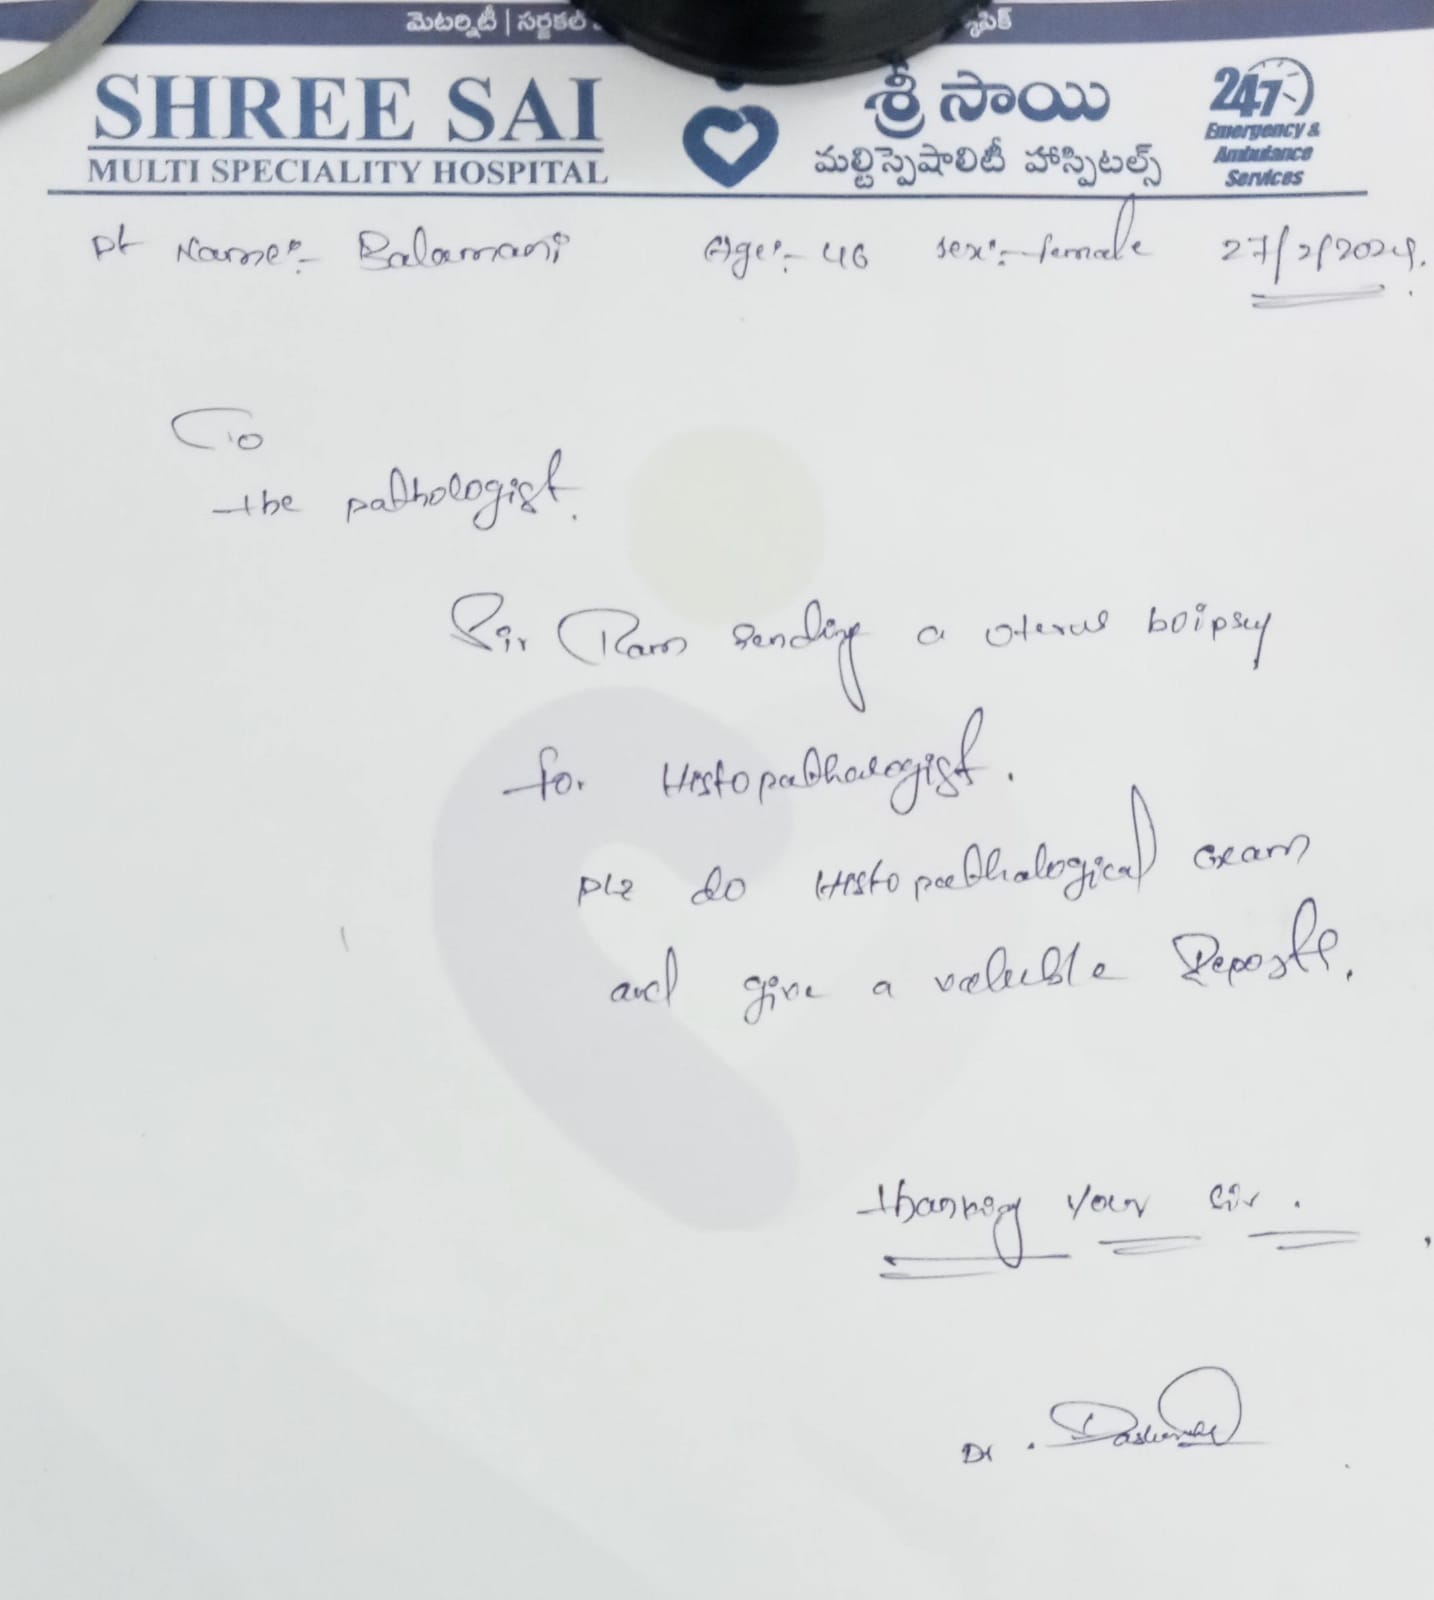 మెటర్నిటీ | సర్జికల్
SHREE SAI
MULTI SPECIALITY HOSPITAL
శ్రీ సాయి
మల్టిస్పెషాలిటీ హాస్పిటల్స్
247
Emergency &
Ambulance
Services
Pt Name:- Balamani Age:- 46 sex:- female 27/2/2024.
To
the pathologist.
Sir Iam sending a oterus boipsy
for Histopathalogist.
plz do Histopathalogical exam
and give a valuble Reports.
thanking your sir.
Dr.